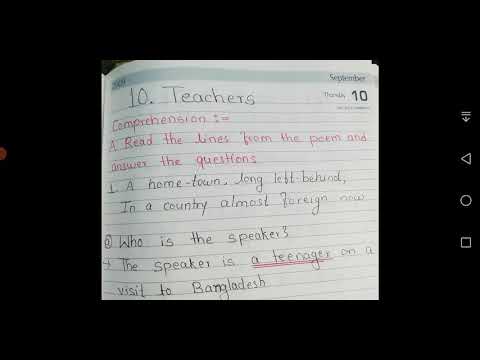 2009
September
Thursday 10
10. Teachers
Comprehension :=
A. Read the lines from the poem and
answer the questions
1. A home-town, long left-behind,
In a country almost foreign now
@ Who is the speaker?
The speaker is a teenager on a
visit to Bangladesh